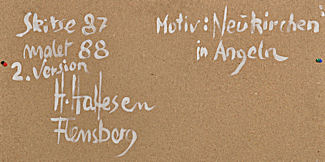 Skitse 87
malet 88
2. Version
H. Hattesen
Flensborg
Motiv: Neukirchen
in Angeln